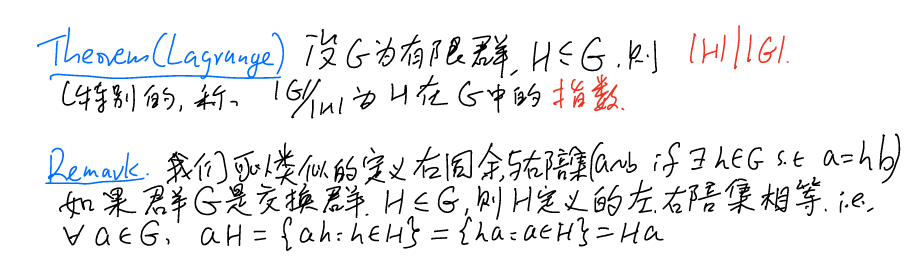 Theorem(Lagrange) 设G为有限群, H≤G, 则 |H| | |G|.
(特别的, 称 |G|/|H| 为 H 在 G 中的 指数.
Remark. 我们可以类似的定义右同余与右陪集(a~b if ∃ h∈G s.t. a=hb)
如果群G是交换群. H≤G, 则H定义的左.右陪集相等. i.e,
∀ a∈G, aH = {ah : h∈H} = {ha : a∈H} = Ha